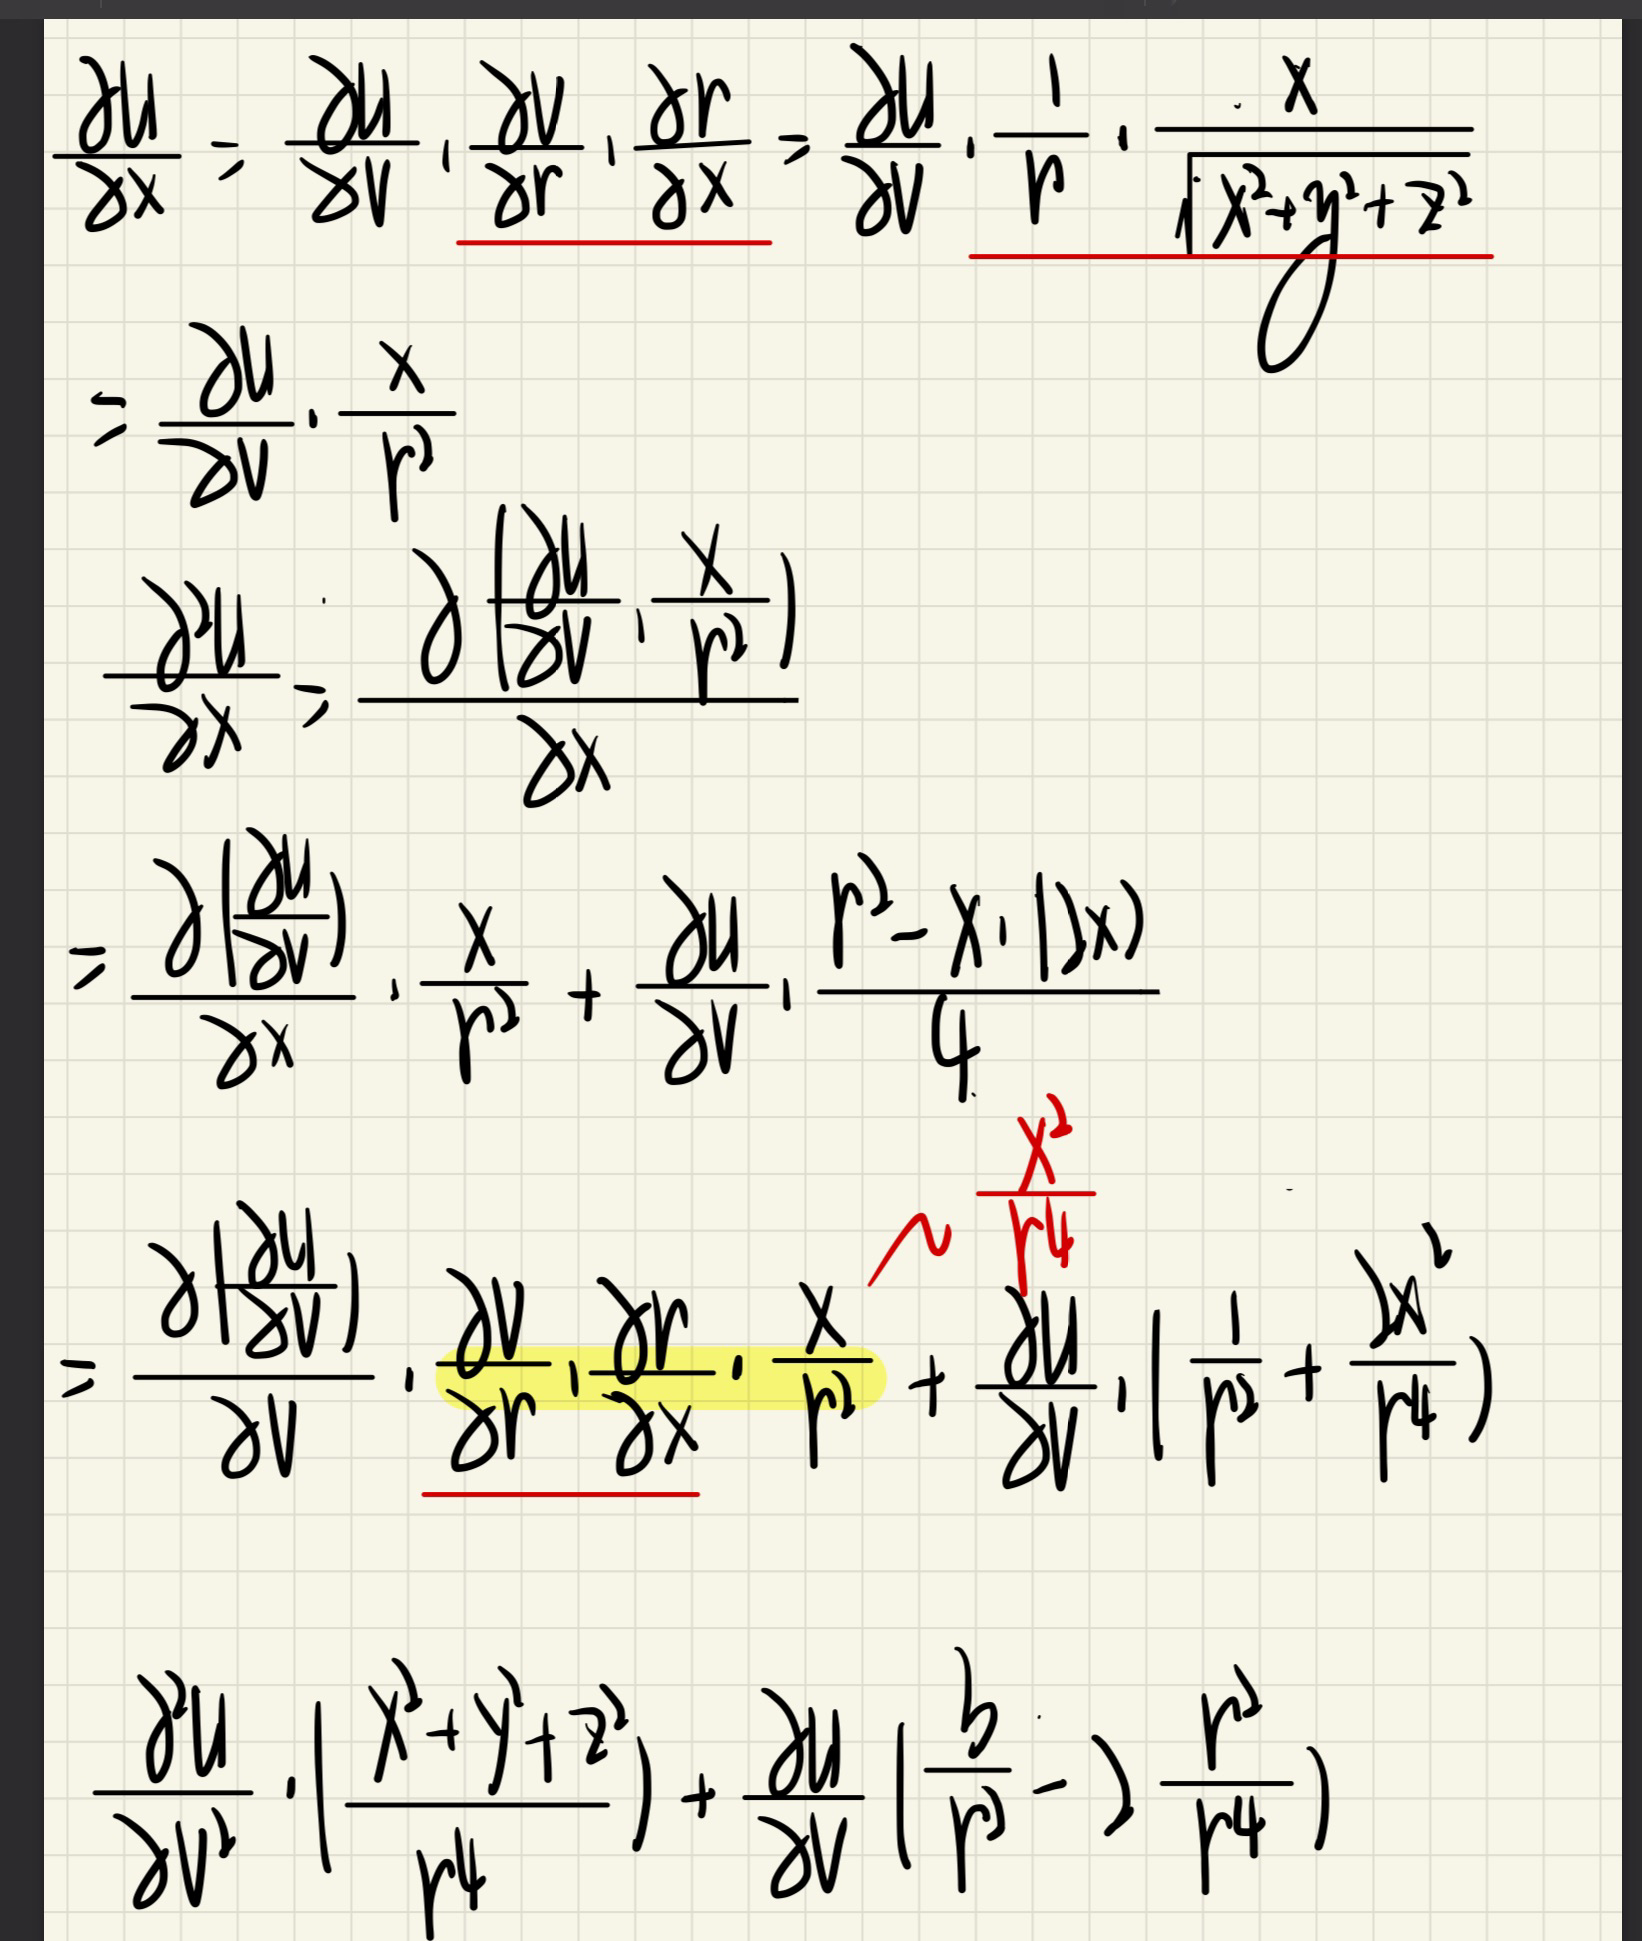 ∂u/∂x = ∂u/∂v · ∂v/∂r · ∂r/∂x = ∂u/∂v · 1/r · x/√(x²+y²+z²)
= ∂u/∂v · x/r²
∂²u/∂x = ∂(∂u/∂v · x/r²)/∂x
= ∂(∂u/∂v)/∂x · x/r² + ∂u/∂v · (r² - x·(2x))/4
x²/r4
= ∂(∂u/∂v)/∂v · ∂v/∂r · ∂r/∂x · x/r² + ∂u/∂v · (1/r² + 2x²/r4)
∂²u/∂v² · ((x²+y²+z²)/r4) + ∂u/∂v (3/r² - 2 r²/r4)